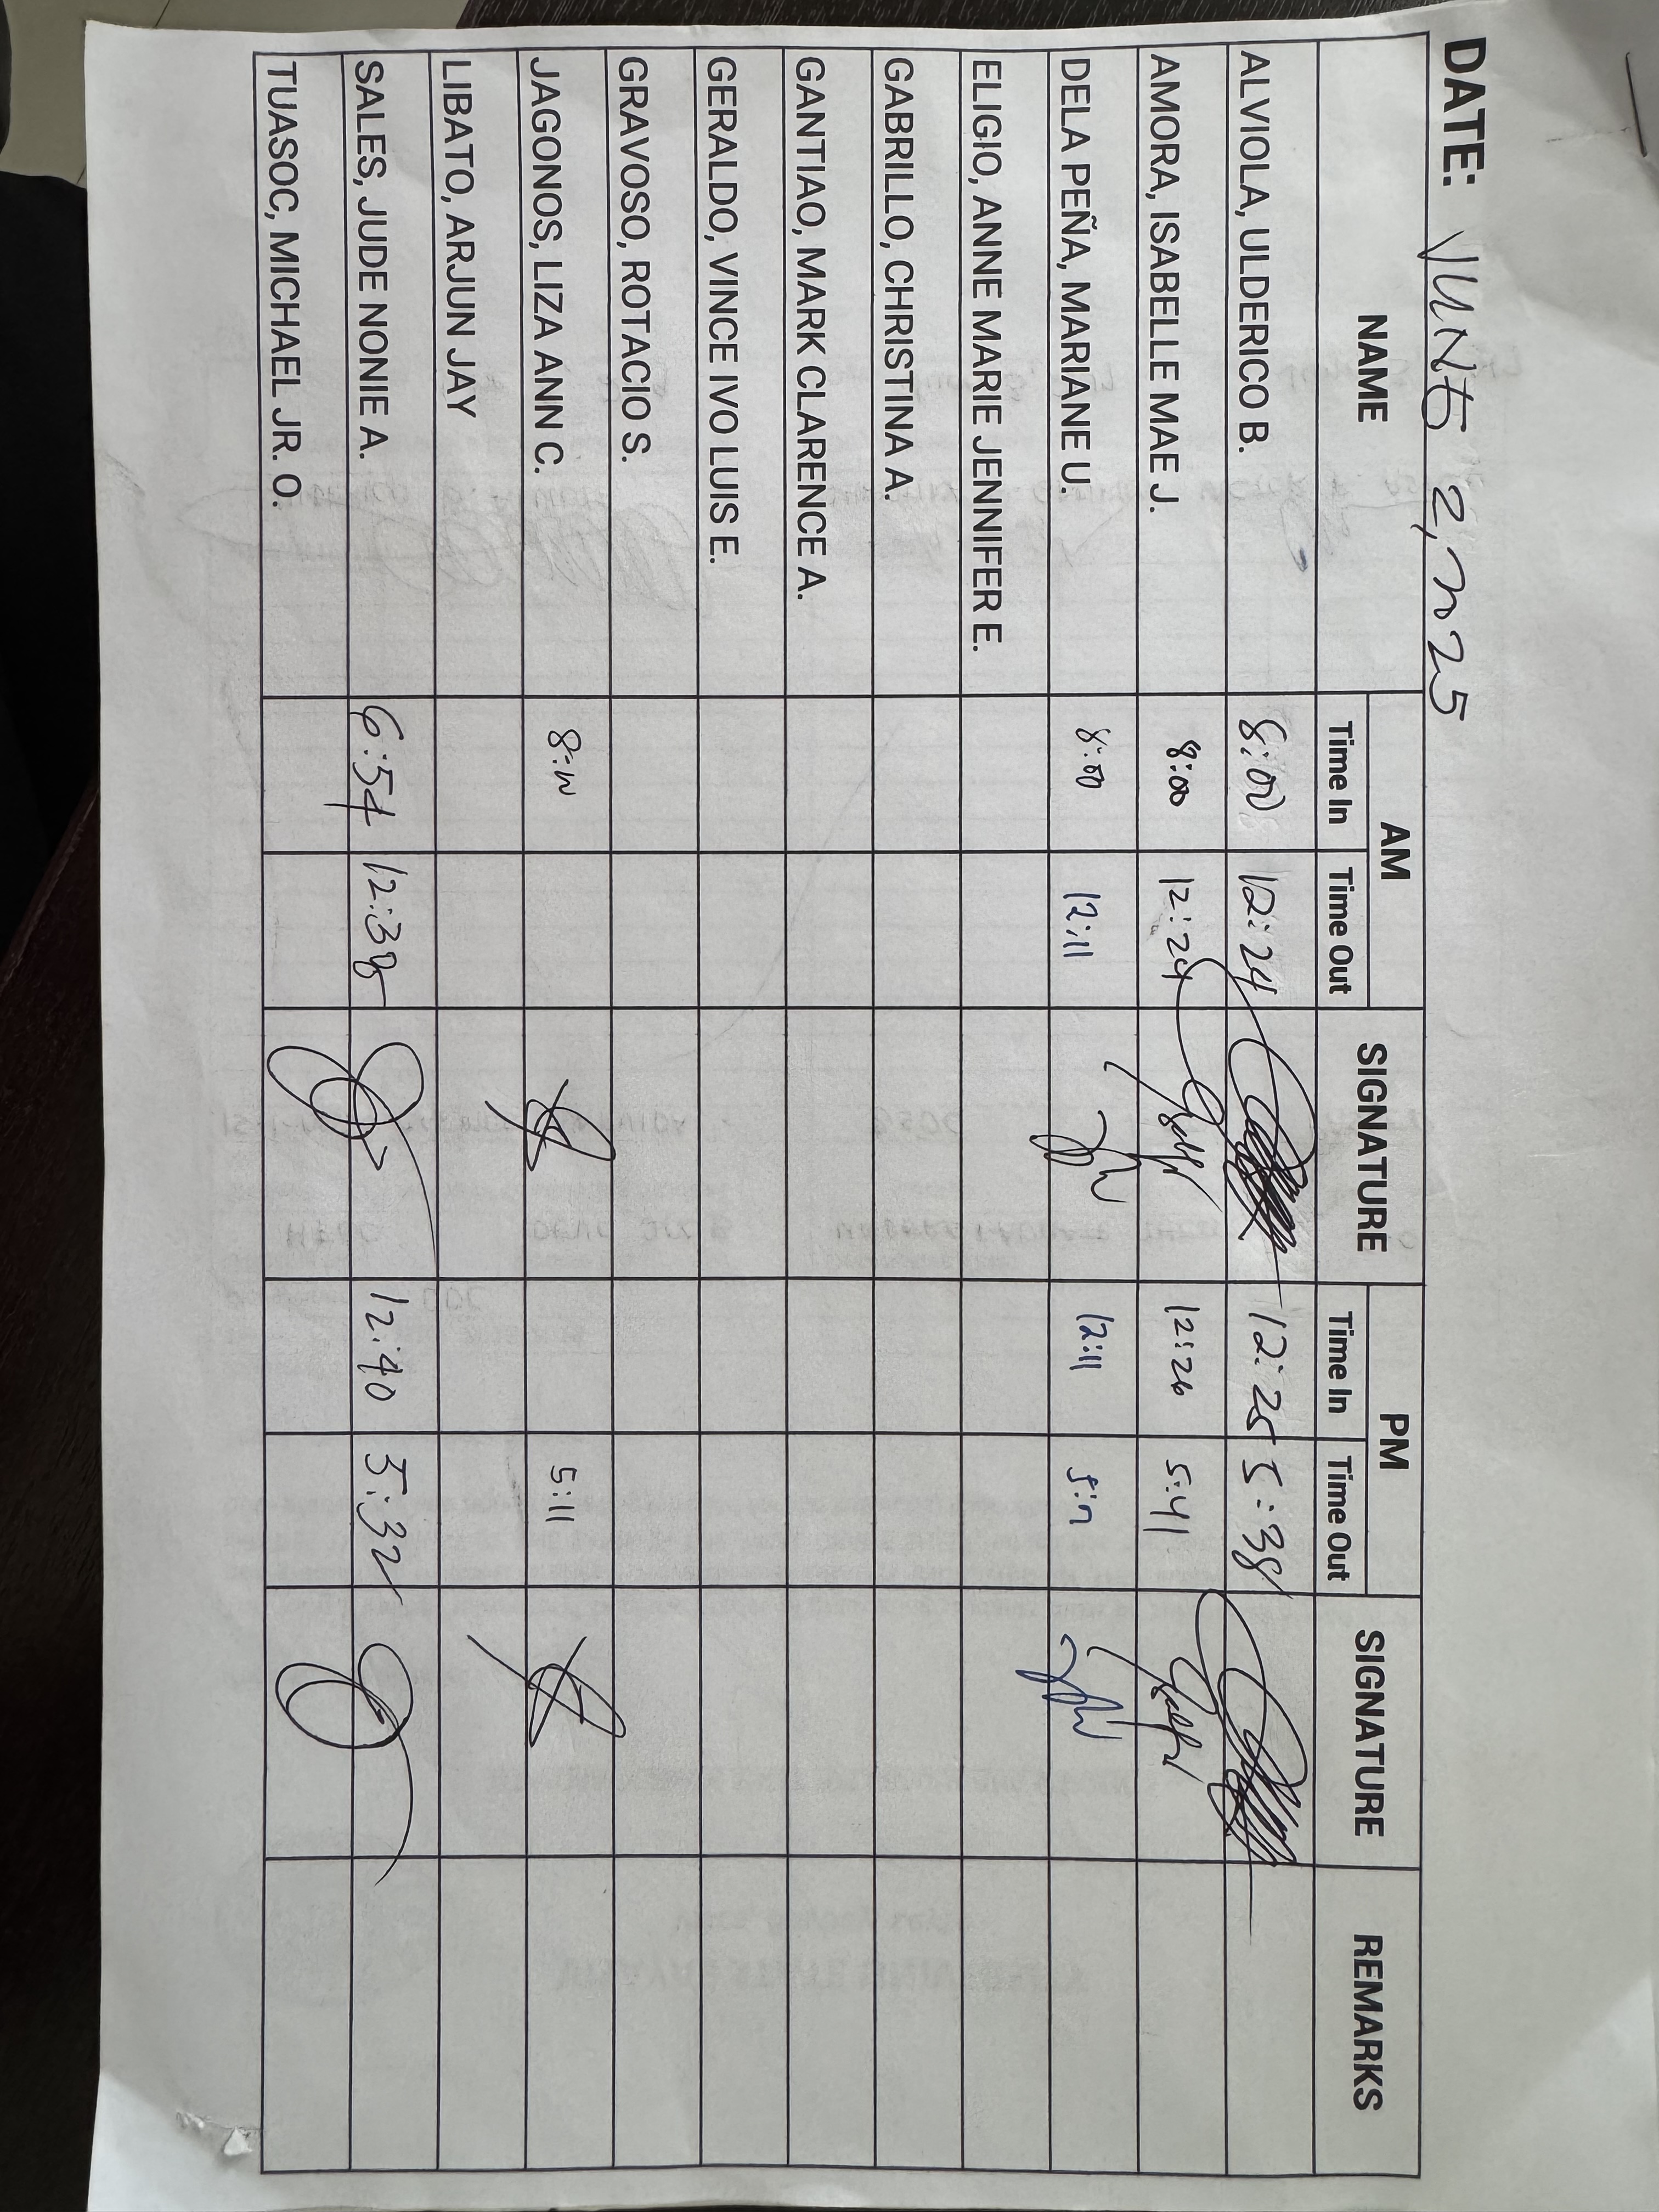 DATE: JUNE 2, 2025
NAME AM SIGNATURE PM SIGNATURE REMARKS
Time In Time Out Time In Time Out
ALVIOLA, ULDERICO B. 8:00 12:24 12:25 5:38
AMORA, ISABELLE MAE J. 8:00 12:24 12:26 5:41
DELA PEÑA, MARIANE U. 8:00 12:11 12:11
ELIGIO, ANNE MARIE JENNIFER E.
GABRILLO, CHRISTINA A.
GANTIAO, MARK CLARENCE A.
GERALDO, VINCE IVO LUIS E.
GRAVOSO, ROTACIO S.
JAGONOS, LIZA ANN C. 5:11
LIBATO, ARJUN JAY
SALES, JUDE NONIE A. 6:54 12:38 12:40 5:32
TUASOC, MICHAEL JR. O.